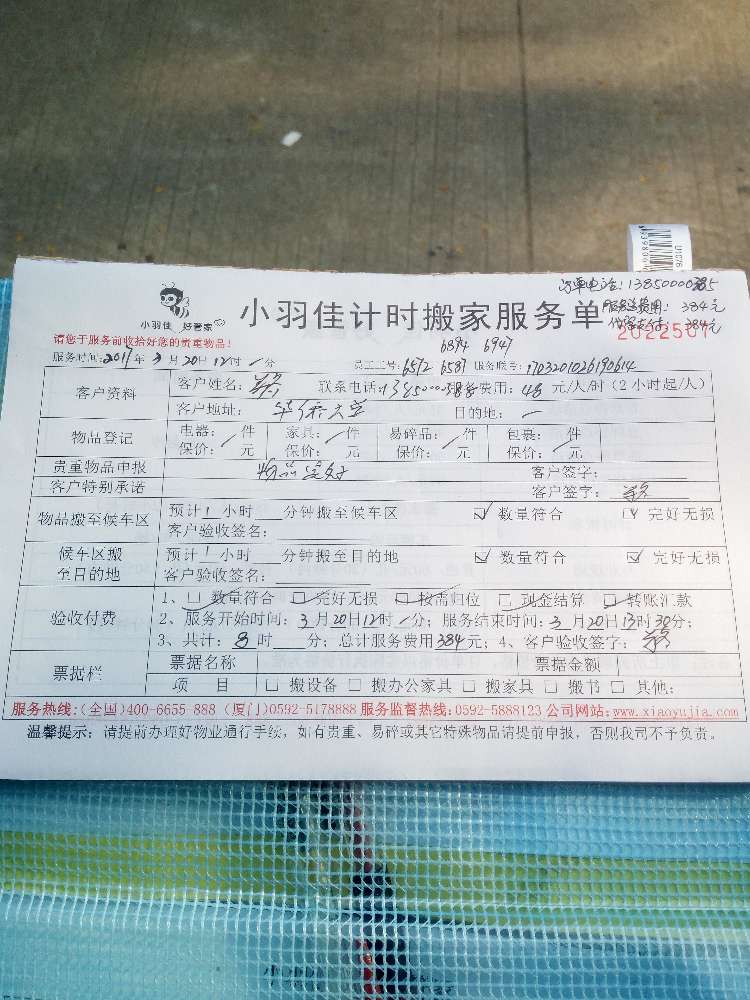 订单电话:13850000385
小羽佳 好管家
小羽佳计时搬家服务单
服务总费用: 384元
384元
2022501
请您于服务前收拾好您的贵重物品!
6894 6947
服务时间:2017年3月20日12时/分 员工工号:6572 6587 服务账号:1703201026190614
客户资料
客户姓名: 联系电话: 服务费用:48元/人/时(2小时起/人)
客户地址:华侨大学 目的地:
物品登记
电器: 件 家具: 件 易碎品: 件 包裹: 件
保价: 元 保价: 元 保价: 元 保价: 元
贵重物品申报 物品完好 客户签字:
客户特别承诺 客户签字:
物品搬至候车区
预计1小时 分钟搬至候车区 ☑数量符合 ☑完好无损
客户验收签名:
候车区搬至目的地
预计1小时 分钟搬至目的地 ☑数量符合 ☑完好无损
客户验收签名:
验收付费
1、☑数量符合 ☑完好无损 ☑按需归位 ☑现金结算 ☑转账汇款
2、服务开始时间:3月20日12时/分;服务结束时间:3月20日13时30分;
3、共计:8时 分;总计服务费用384元;4、客户验收签字:
票据栏
票据名称 票据金额
项 目 □搬设备 □搬办公家具 □搬家具 □搬书 □其他:
服务热线:(全国)400-6655-888 (厦门)0592-5178888 服务监督热线:0592-5888123 公司网站:www.xiaoyujia.com
温馨提示:请提前办理好物业通行手续,如有贵重、易碎或其它特殊物品请提前申报,否则我司不予负责。